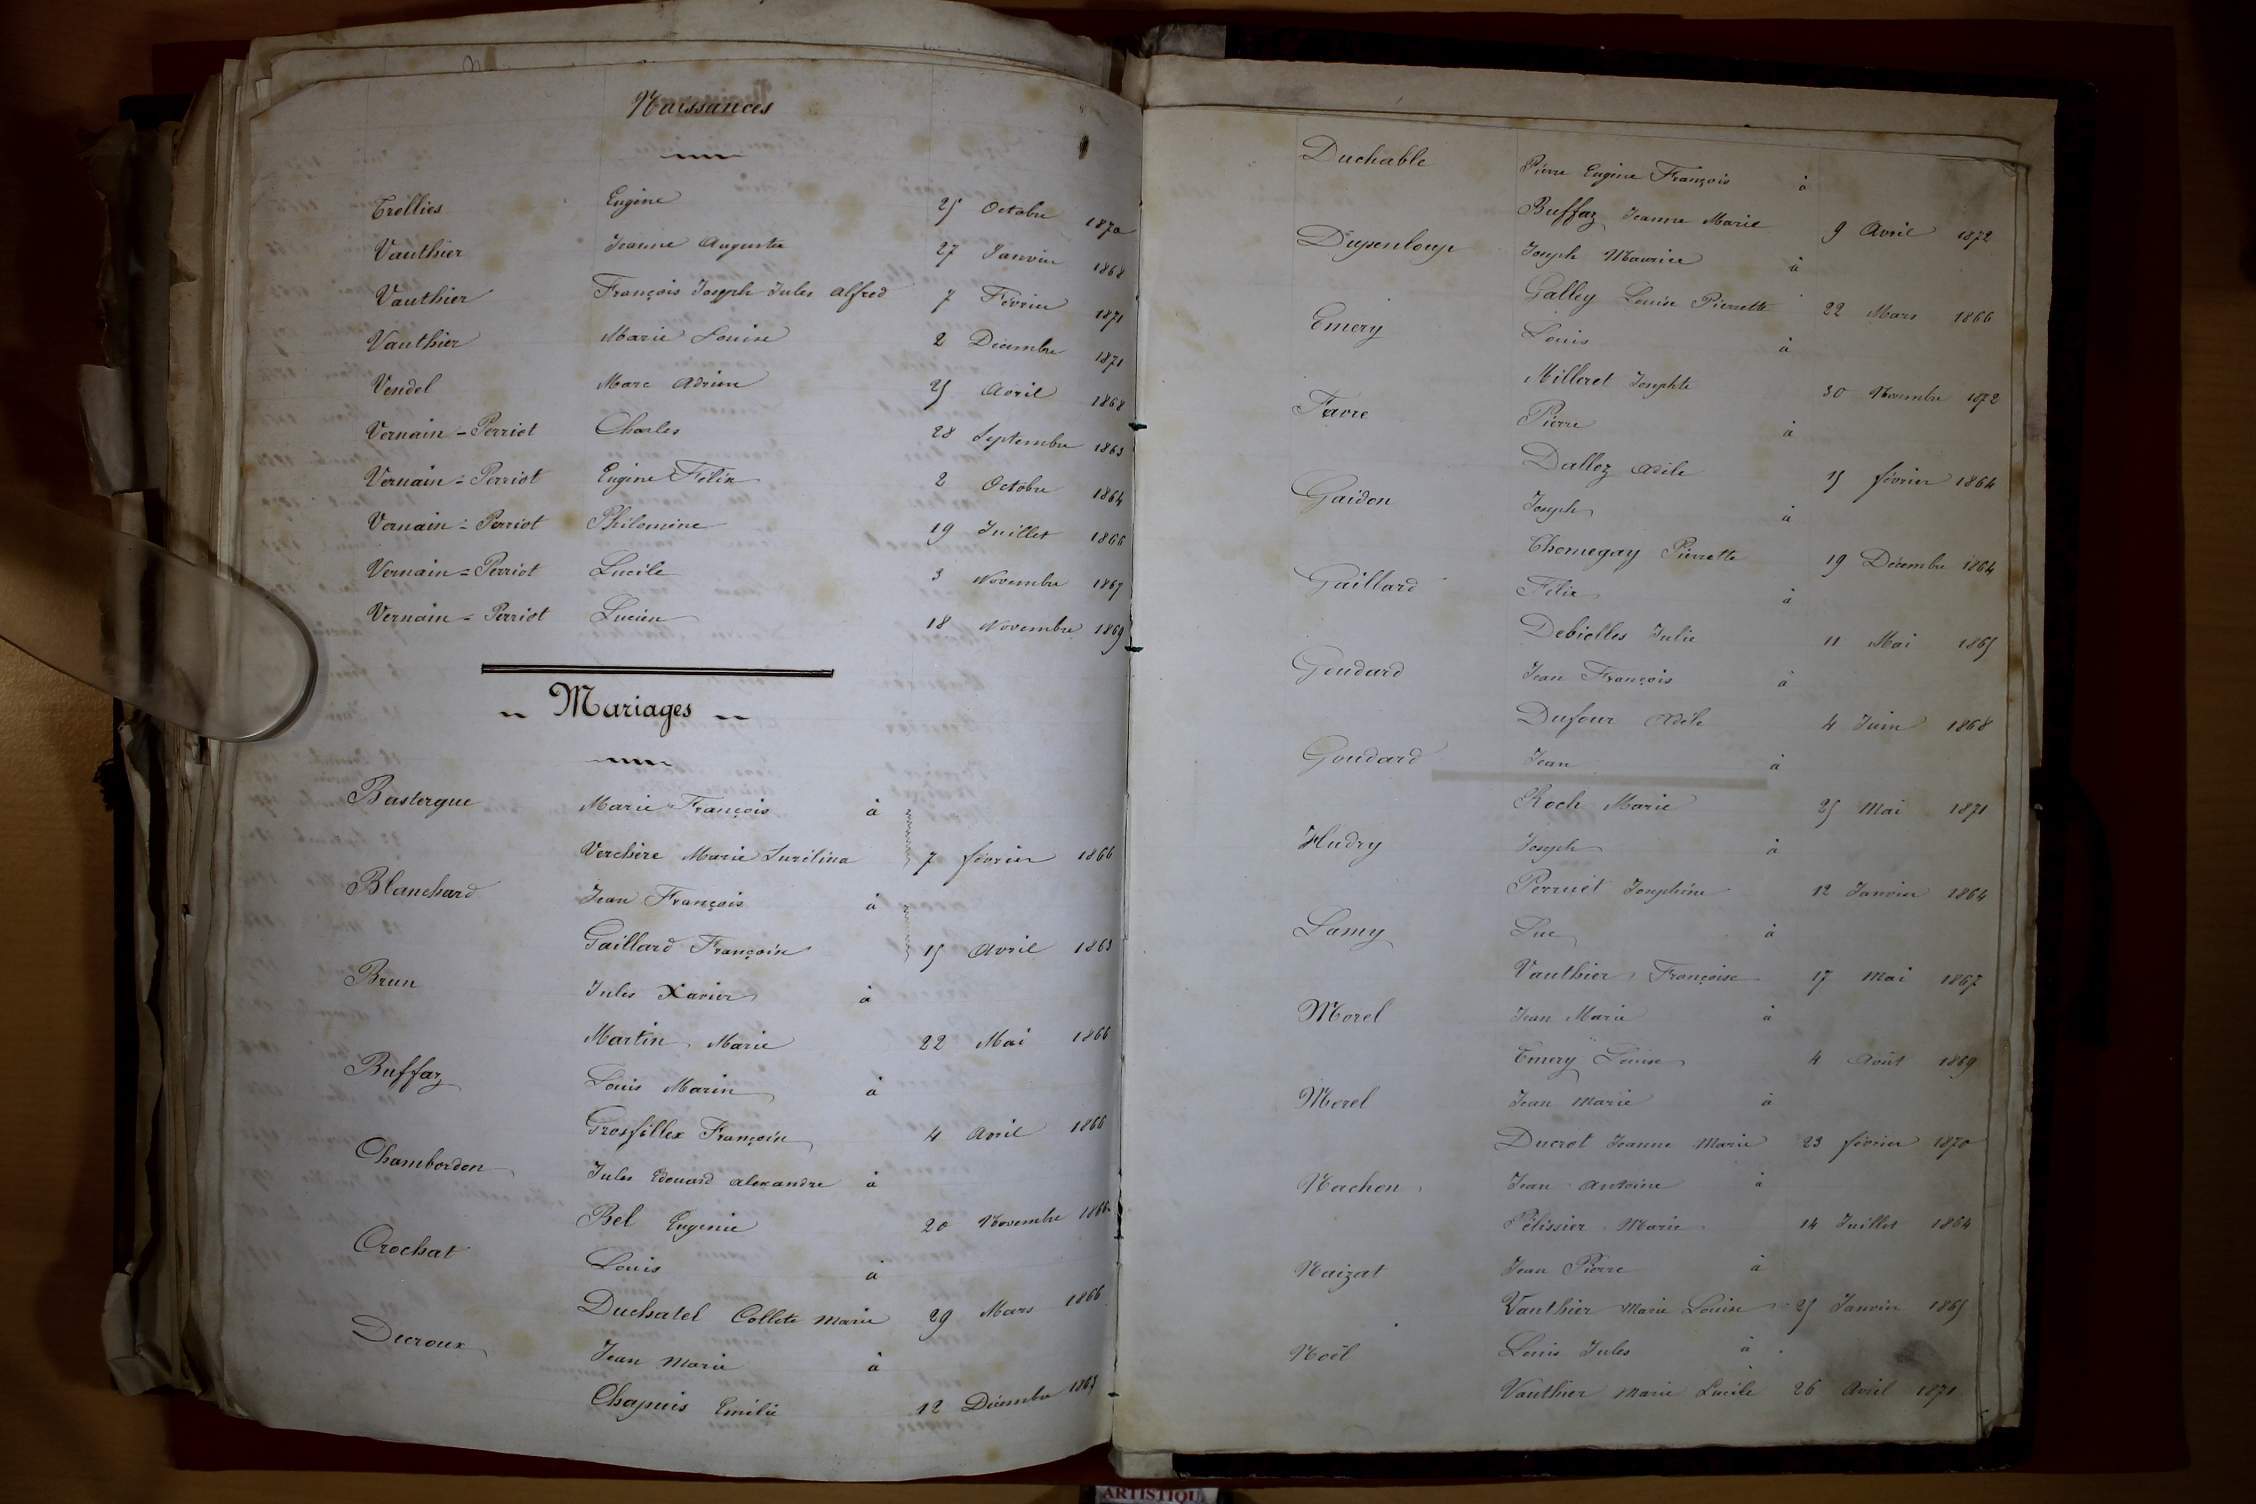 Naissances
Trellies Eugène 25 Octobre 1870
Vauthier Jeanne Augusta 27 Janvier 1868
Vauthier François Joseph Jules Alfred 7 Février 1871
Vauthier Marie Louise 2 Décembre 1871
Vendel Marc Adrien 25 Avril 1868
Vernain-Perriot Charles 28 Septembre 1863
Vernain=Perriot Eugène Félix 2 Octobre 1864
Vernain=Perriot Philomène 19 Juillet 1866
Vernain=Perriot Lucile 3 Novembre 1867
Vernain=Perriot Lucien 18 Novembre 1869
Mariages
Bastergue Marie François à
Verchère Marie 7 février 1866
Blanchard Jean François à
Gaillard Françoise 15 Avril 1863
Brun Jules Xavier à
Martin Marie 22 Mai 1866
Buffaz Louis Marin à
Grosfillex Françoise 4 Avril 1866
Chambordon Jules Edouard Alexandre à
Bel Eugenie 20 Novembre 1866
Crochat Louis à
Duchatel Collete Marie 29 Mars 1866
Ducroux Jean Marie à
Chapuis Emilie 12 Décembre 1865
Duchable Pierre Eugène François à
Buffaz Jeanne Marie 9 Avril 1872
Dupenloup Joseph Maurice à
Galley Louise Pierrette 22 Mars 1866
Emery Louis à
Milleret Josephte 30 Novembre 1872
Favre Pierre à
Dalloz Adèle 15 février 1864
Gaidon Joseph à
Thomegay Pierrette 19 Décembre 1864
Gaillard Félix à
Debielles Julie 11 Mai 1865
Goudard Jean François à
Dufour Adèle 4 Juin 1868
Goudard Jean à
Roch Marie 25 Mai 1871
Hudry Joseph à
Perruet Josephine 12 Janvier 1864
Lamy Luc à
Vauthier Françoise 17 Mai 1867
Morel Jean Marie à
Emery Louise 4 Août 1869
Morel Jean Marie à
Ducrot Jeanne Marie 23 février 1870
Nachon Jean Antoine à
Pélissier Marie 14 Juillet 1864
Naizat Jean Pierre à
Vauthier Marie Louise 25 Janvier 1865
Noël Louis Jules à
Vauthier Marie Lucile 26 Avril 1871
ARTISTIQU